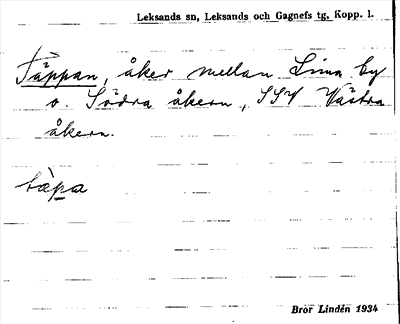 Leksands sn, Leksands och Gagnefs tg, Kopp. l.
Täppan, åker mellan Lima by
o. Södra åkern, SSV Västra
åkern.
tæ̀pa
Bror Lindén 1934